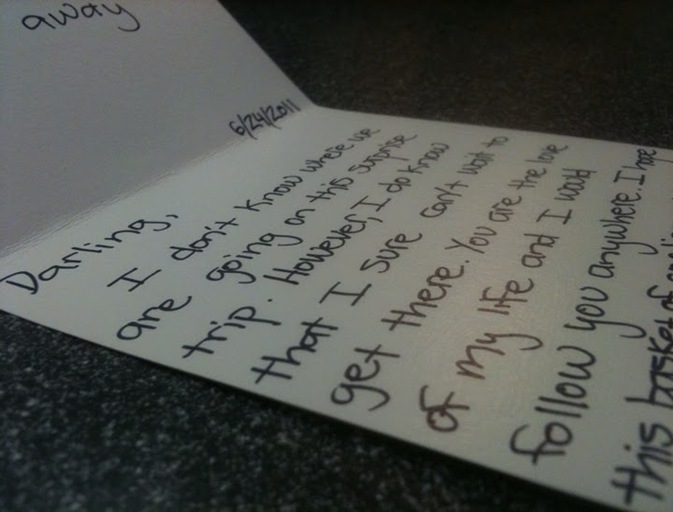 away
6/24/2011
Darling,
I don't know where we
are going on this surprise
trip. However, I do know
that I sure can't wait to
get there. You are the love
of my life and I would
follow you anywhere. I hope
this basket of